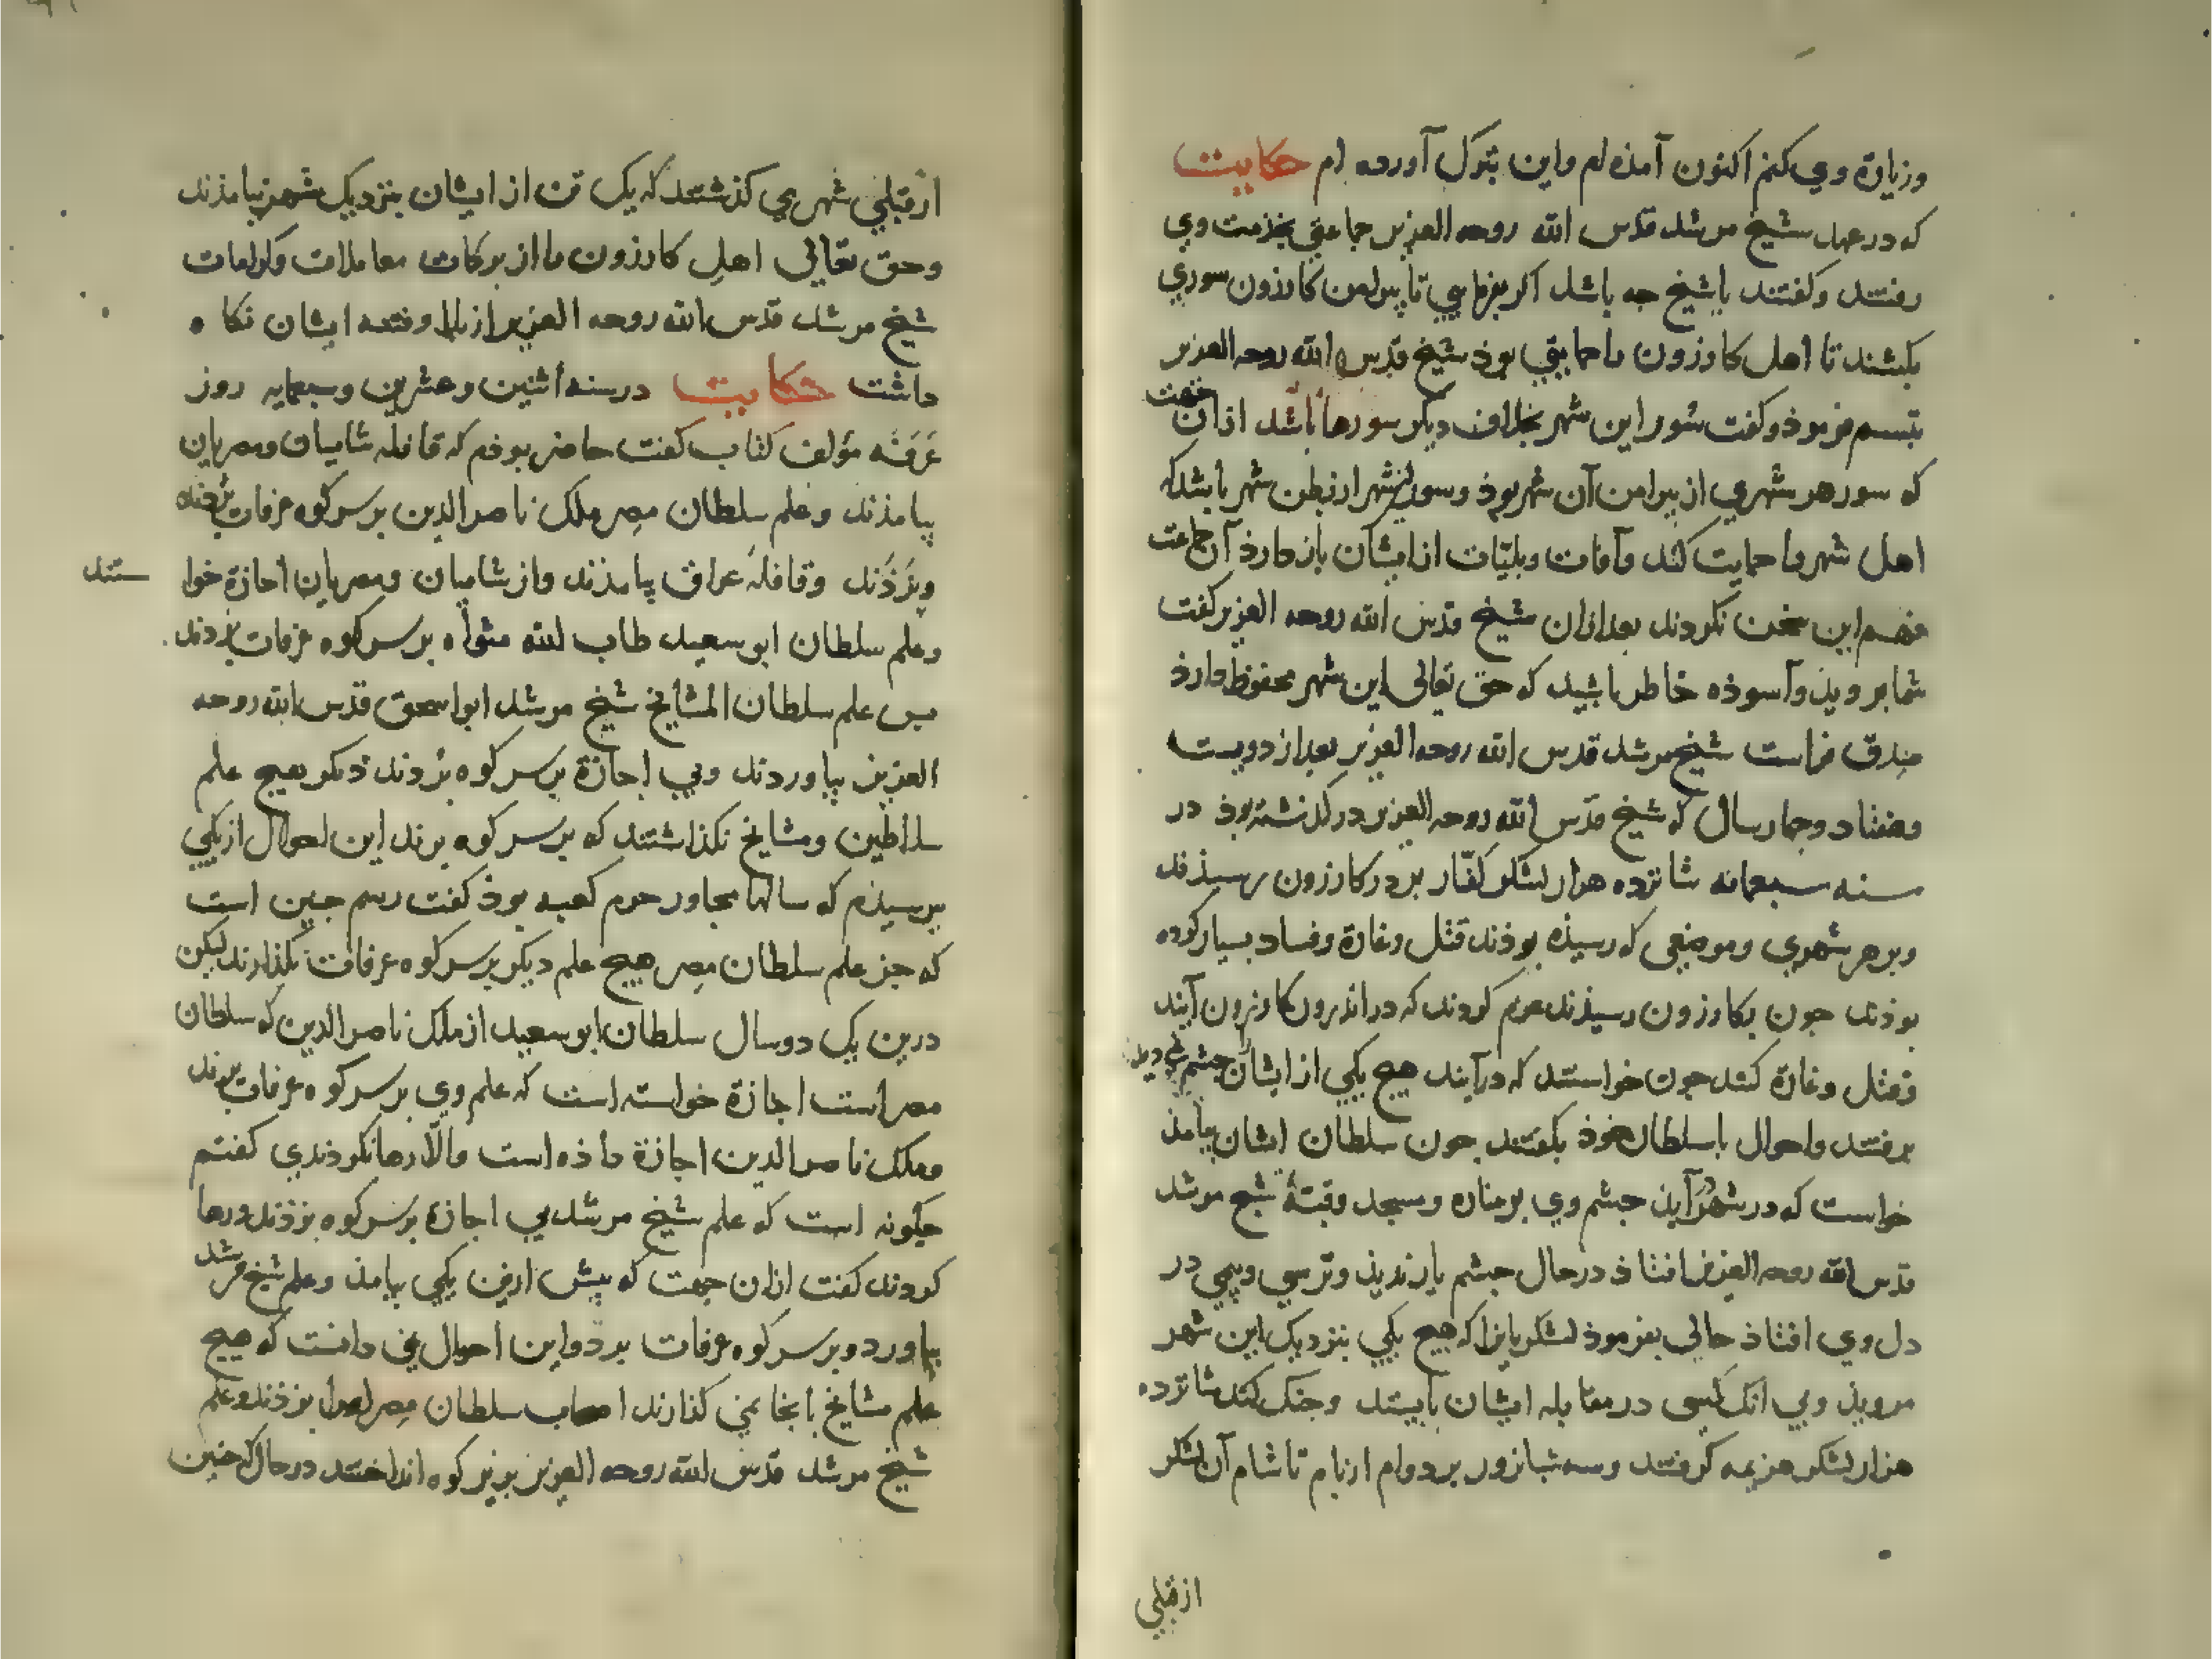 وزیارة وي کنم اکنون آمذه ام واین بتبرک آورده ام حکایت
که در عهد شیخ مرشد قدس الله روحه العزیز جماعتي بخذمت وي
رفتند وکفتند یا شیخ جه باشد اکر بفرمایي تا پیرامن کازرون سوري
بکشند تا اهل کازرون را حمایتي بوذ شیخ قدس الله روحه العزیز
تبسم فرموذ وکفت سور این شهر بخلاف دیکر سورها باشد ازان جهت
که سور هر شهري از پیرامن آن شهر بوذ وسور این شهر از بطن شهر باشد که
اهل شهر را حمایت کند وآفات وبلیّات از ایشان باز دارذ آن جماعت
فهم این سخن نکردند بعد ازان شیخ قدس الله روحه العزیز کفت
شما برویذ وآسوذه خاطر باشید که حق تعالی این شهر محفوظ دارذ
صدق فراست شیخ مرشد قدس الله روحه العزیز بعد از دویست
وهفتاد وجهار سال که شیخ قدّس الله روحه العزیز در کذشته بوذ در
سنه سبعمائه شانزده هزار لشکر کفّار بر در کازرون رسیذند
وبر هر شهري وموضعي که رسیذه بوذند قتل وغارة وفساد بسیار کرده
بوذند جون بکازرون رسیذند عزم کردند که در اندرون کازرون آیند
وقتل وغارة کنند جون خواستند که درآیند هیج یکي از ایشان جشم
برفتند واحوال با سلطان خوذ بکفتند جون سلطان ایشان بیامذ
خواست که در شهر درآیذ جشم وي بر مناره ومسجد وقبّهٔ شیخ مرشد
قدس الله روحه العزیز افتاذ در حال جشم باز ندیذ وترسي وبیمي در
دل وي افتاذ حالي بفرموذ لشکریانرا که هیج یکي بنزدیک این شهر
مرویذ وبي انک کسی در مقابله ایشان بایستد وجنک کند شانزده
هزار لشکر هزیمه کرفتند وسه شبانروز بر دوام از بام تا شام آن لشکر
از قبلي
از قبلي شهر مي کذشتند که یک تن از ایشان بنزدیک شهر نیامذند
وحق تعالی اهل کازرون را از برکات معاملات وکرامات
شیخ مرشد قدّس الله روحه العزیز از بلا وفتنه ایشان نکاه
داشت حکایت در سنه اثنین وعشرین وسبعمایه روز
عَرَفَه مؤلف کتاب کفت حاضر بوذم که قافله شامیان ومصریان
بیامذند وعلم سلطان مصر ملک ناصر الدین بر سر کوه عرفات
وبَرْدَند وقافلهٔ عراق بیامذند واز شامیان ومصریان اجازة خواستند
وعلم سلطان ابو سعید طاب الله مثواه بر سر کوه عرفات بردند
پس علم سلطان المشایخ شیخ مرشد ابو اسحق قدّس الله روحه
العزیز بیاوردند وبي اجازة بر سر کوه بُردند دیکر هیج علم
سلاطین ومشایخ نکذاشتند که بر سر کوه برند این احوال از یکي
پرسیذم که سالها مجاور حرم کعبه بوذ کفت رسم جنین است
که جز علم سلطان مصر هیج علم دیکر بر سر کوه عرفات نکذارند لیکن
درین یک دو سال سلطان ابو سعید از ملک ناصر الدین که سلطان
مصر است اجازة خواسته است که علم وي بر سر کوه عرفات برند
وملک ناصر الدین اجازة داذه است والّا رها نکردندي کفتم
جکونه است که علم شیخ مرشد بي اجازة بر سر کوه بردند ورها
کردند کفت ازان جهت که پیش ازین یکي بیامذ وعلم شیخ مرشد
بیاورد وبر سر کوه عرفات برد واین احوال نمي دانست که هیج
علم مشایخ بانجا نمي کذارند اصحاب سلطان مصر بوذند وعلم
شیخ مرشد قدّس الله روحه العزیز بزیر کوه انداختند در حال که جنین